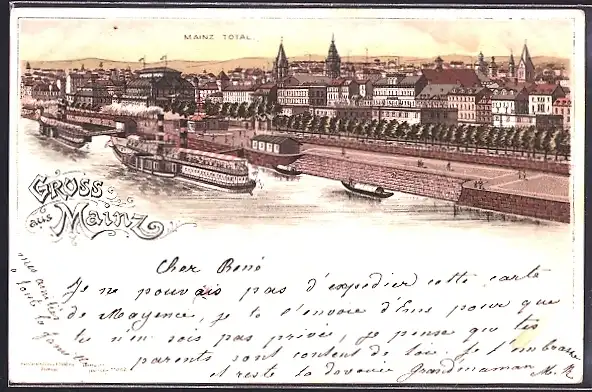 MAINZ TOTAL.
GROSS
aus Mainz
Cher René
Je ne pouvais pas d'expedier cette carte
de Mayence, je te l'envoie d'hus pour que
tu n'en sois pas privé, je pense que tes
parents sont content de toi. Je t'embrasse
et reste ta devouée Grandmaman M. R.
mes amitiés
à toute la famille